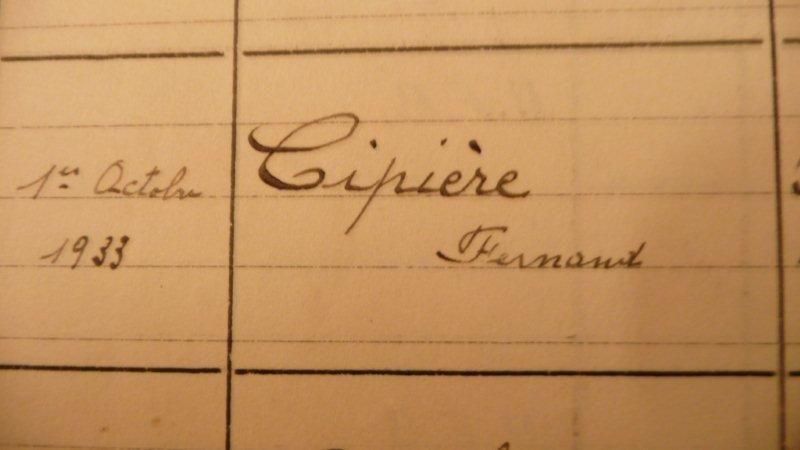 1er Octobre
1933
Cipière
Fernand